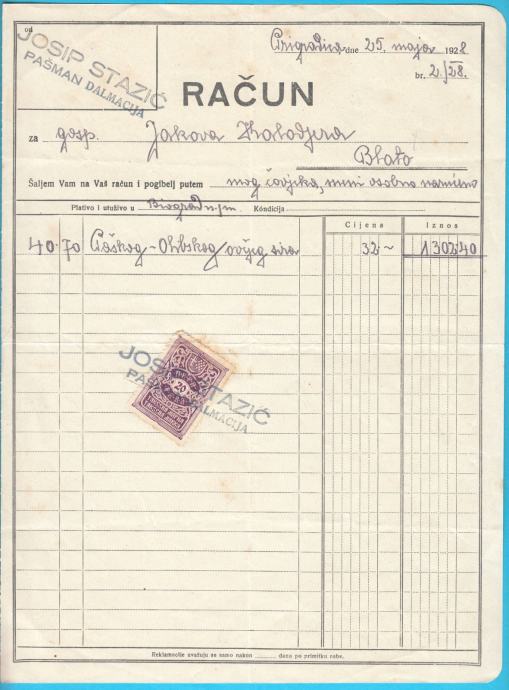 od
JOSIP STAZIĆ
PAŠMAN DALMACIJA
dne 25. maja 1928
br. 2/28.
RAČUN
za gosp. Jakova
Blato
Šaljem Vam na Vaš račun i pogibelj putem mog čovjeka,
Plativo i utuživo u Biograd n/m. Kondicija
Cijena
Iznos
40·70 ovčjeg sira 32·~ 1302·40
JOSIP STAZIĆ
PAŠMAN DALMACIJA
20
Reklamacije uvažuju se samo nakon dana po primitku robe.